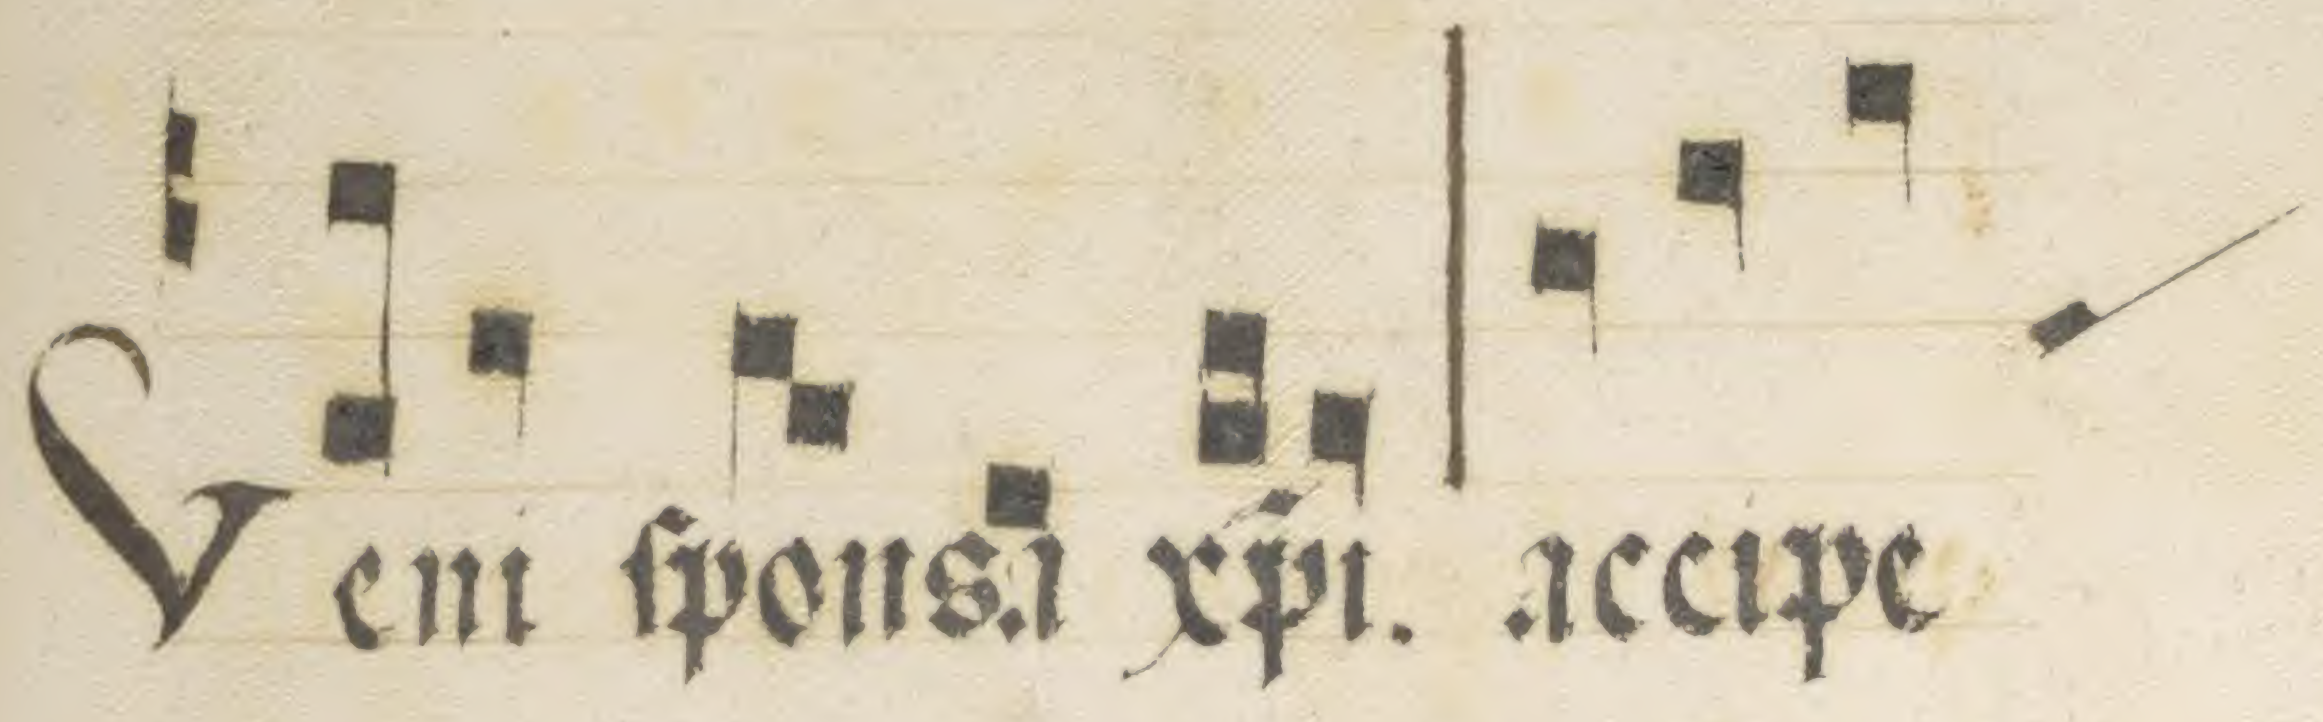 Veni sponsa xp̄i. accipe